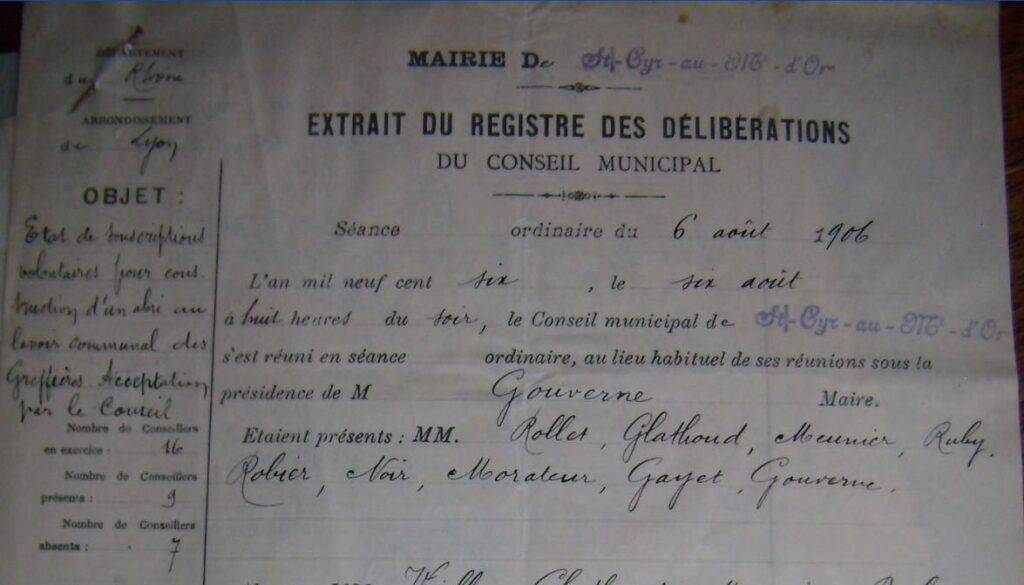 DÉPARTEMENT
du Rhône
ARRONDISSEMENT
de Lyon
OBJET :
Etat de souscriptions
volontaires pour cons
truction d'un abri au
lavoir communal des
Greffières. Acceptation
par le Conseil
Nombre de Conseillers
en exercice : 16
Nombre de Conseillers
présents : 9
Nombre de Conseillers
absents : 7
MAIRIE De St-Cyr-au-Mt-d'Or
EXTRAIT DU REGISTRE DES DÉLIBÉRATIONS
DU CONSEIL MUNICIPAL
Séance ordinaire du 6 août 1906
L'an mil neuf cent six, le six août
à huit heures du soir, le Conseil municipal de St-Cyr-au-Mt-d'Or
s'est réuni en séance ordinaire, au lieu habituel de ses réunions sous la
présidence de M Gouverne Maire.
Etaient présents : MM. Rollet, Glathoud, Meunier, Ruby,
Robier, Noir, Morateur, Gayet, Gouverne.